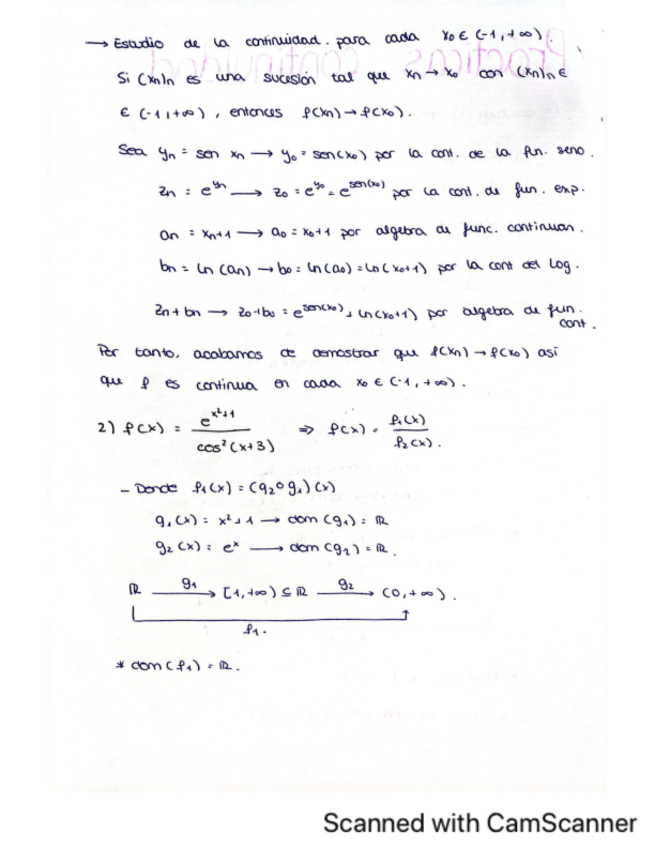 → Estudio de la continuidad. para cada x₀ ∈ (-1,+∞).
Si (xn)n es una sucesión tal que xn → x₀ con (xn)n ∈
∈ (-1,+∞), entonces f(xn) → f(x₀).
Sea yn = sen xn → y₀ = sen(x₀) por la cont. de la fun. seno.
zn = e^yn → z₀ = e^y₀ = e^sen(x₀) por la cont. de fun. exp.
an = xn+1 → a₀ = x₀+1 por algebra de func. continuan.
bn = ln (an) → b₀ = ln(a₀) = ln(x₀+1) por la cont del log.
zn + bn → z₀ + b₀ = e^sen(x₀) + ln(x₀+1) por algebra de fun.
cont.
Por tanto, acabamos de demostrar que f(xn) → f(x₀) así
que f es continua en cada x₀ ∈ (-1, +∞).
2) f(x) = e^(x²+1) / cos²(x+3) ⇒ f(x) = f₁(x) / f₂(x).
- Donde f₁(x) = (g₂∘g₁)(x)
g₁(x) = x²+1 → dom (g₁) = ℝ
g₂(x) = eˣ → dom (g₂) = ℝ.
ℝ g₁→ [1,+∞) ⊆ ℝ g₂→ (0,+∞).
f₁.
* dom (f₁) = ℝ.
Scanned with CamScanner